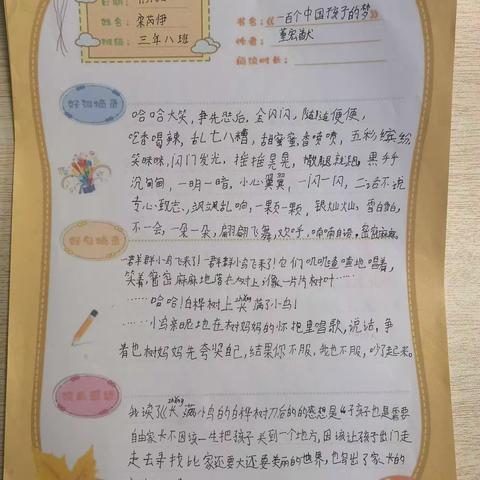 日期：
书名：《一百个中国孩子的梦》
姓名：栾芮伊
作者：董宏猷
班级：三年八班
阅读时长：
好词摘录
哈哈大笑，争先恐后，金闪闪，随随便便，
吃香喝辣，乱七八糟，甜蜜蜜香喷喷，五彩缤纷
笑咪咪，闪门发光，摇摇晃晃，黑乎乎
沉甸甸，一明一暗，小心翼翼，一闪一闪，二话不说
专心致志，飒飒乱响，一颗一颗，银灿灿，雪白白，
不一会，一朵一朵，翩翩飞舞，欢呼，喃喃自语，密密麻麻
好句摘录
一群群小鸟飞来了！一群群小鸟飞来了！它们叽叽喳喳地唱着，
笑着，密密麻麻地落在树上，像一片片树叶……
……哈哈！白桦树上长zhǎng满了小鸟！
……小鸟亲昵地在树妈妈的怀抱里唱歌，说话，争
着也树妈妈先夸奖自己，结果你不服，我也不服，吵了起来。
我读了《长zhǎng满小鸟的白桦树》后的的感想是：孩子也是需要
自由家长不因该一生把孩子关到一个地方，因该让孩子出门走
走去寻找比家还要大还要美丽的世界，也写出了家长的